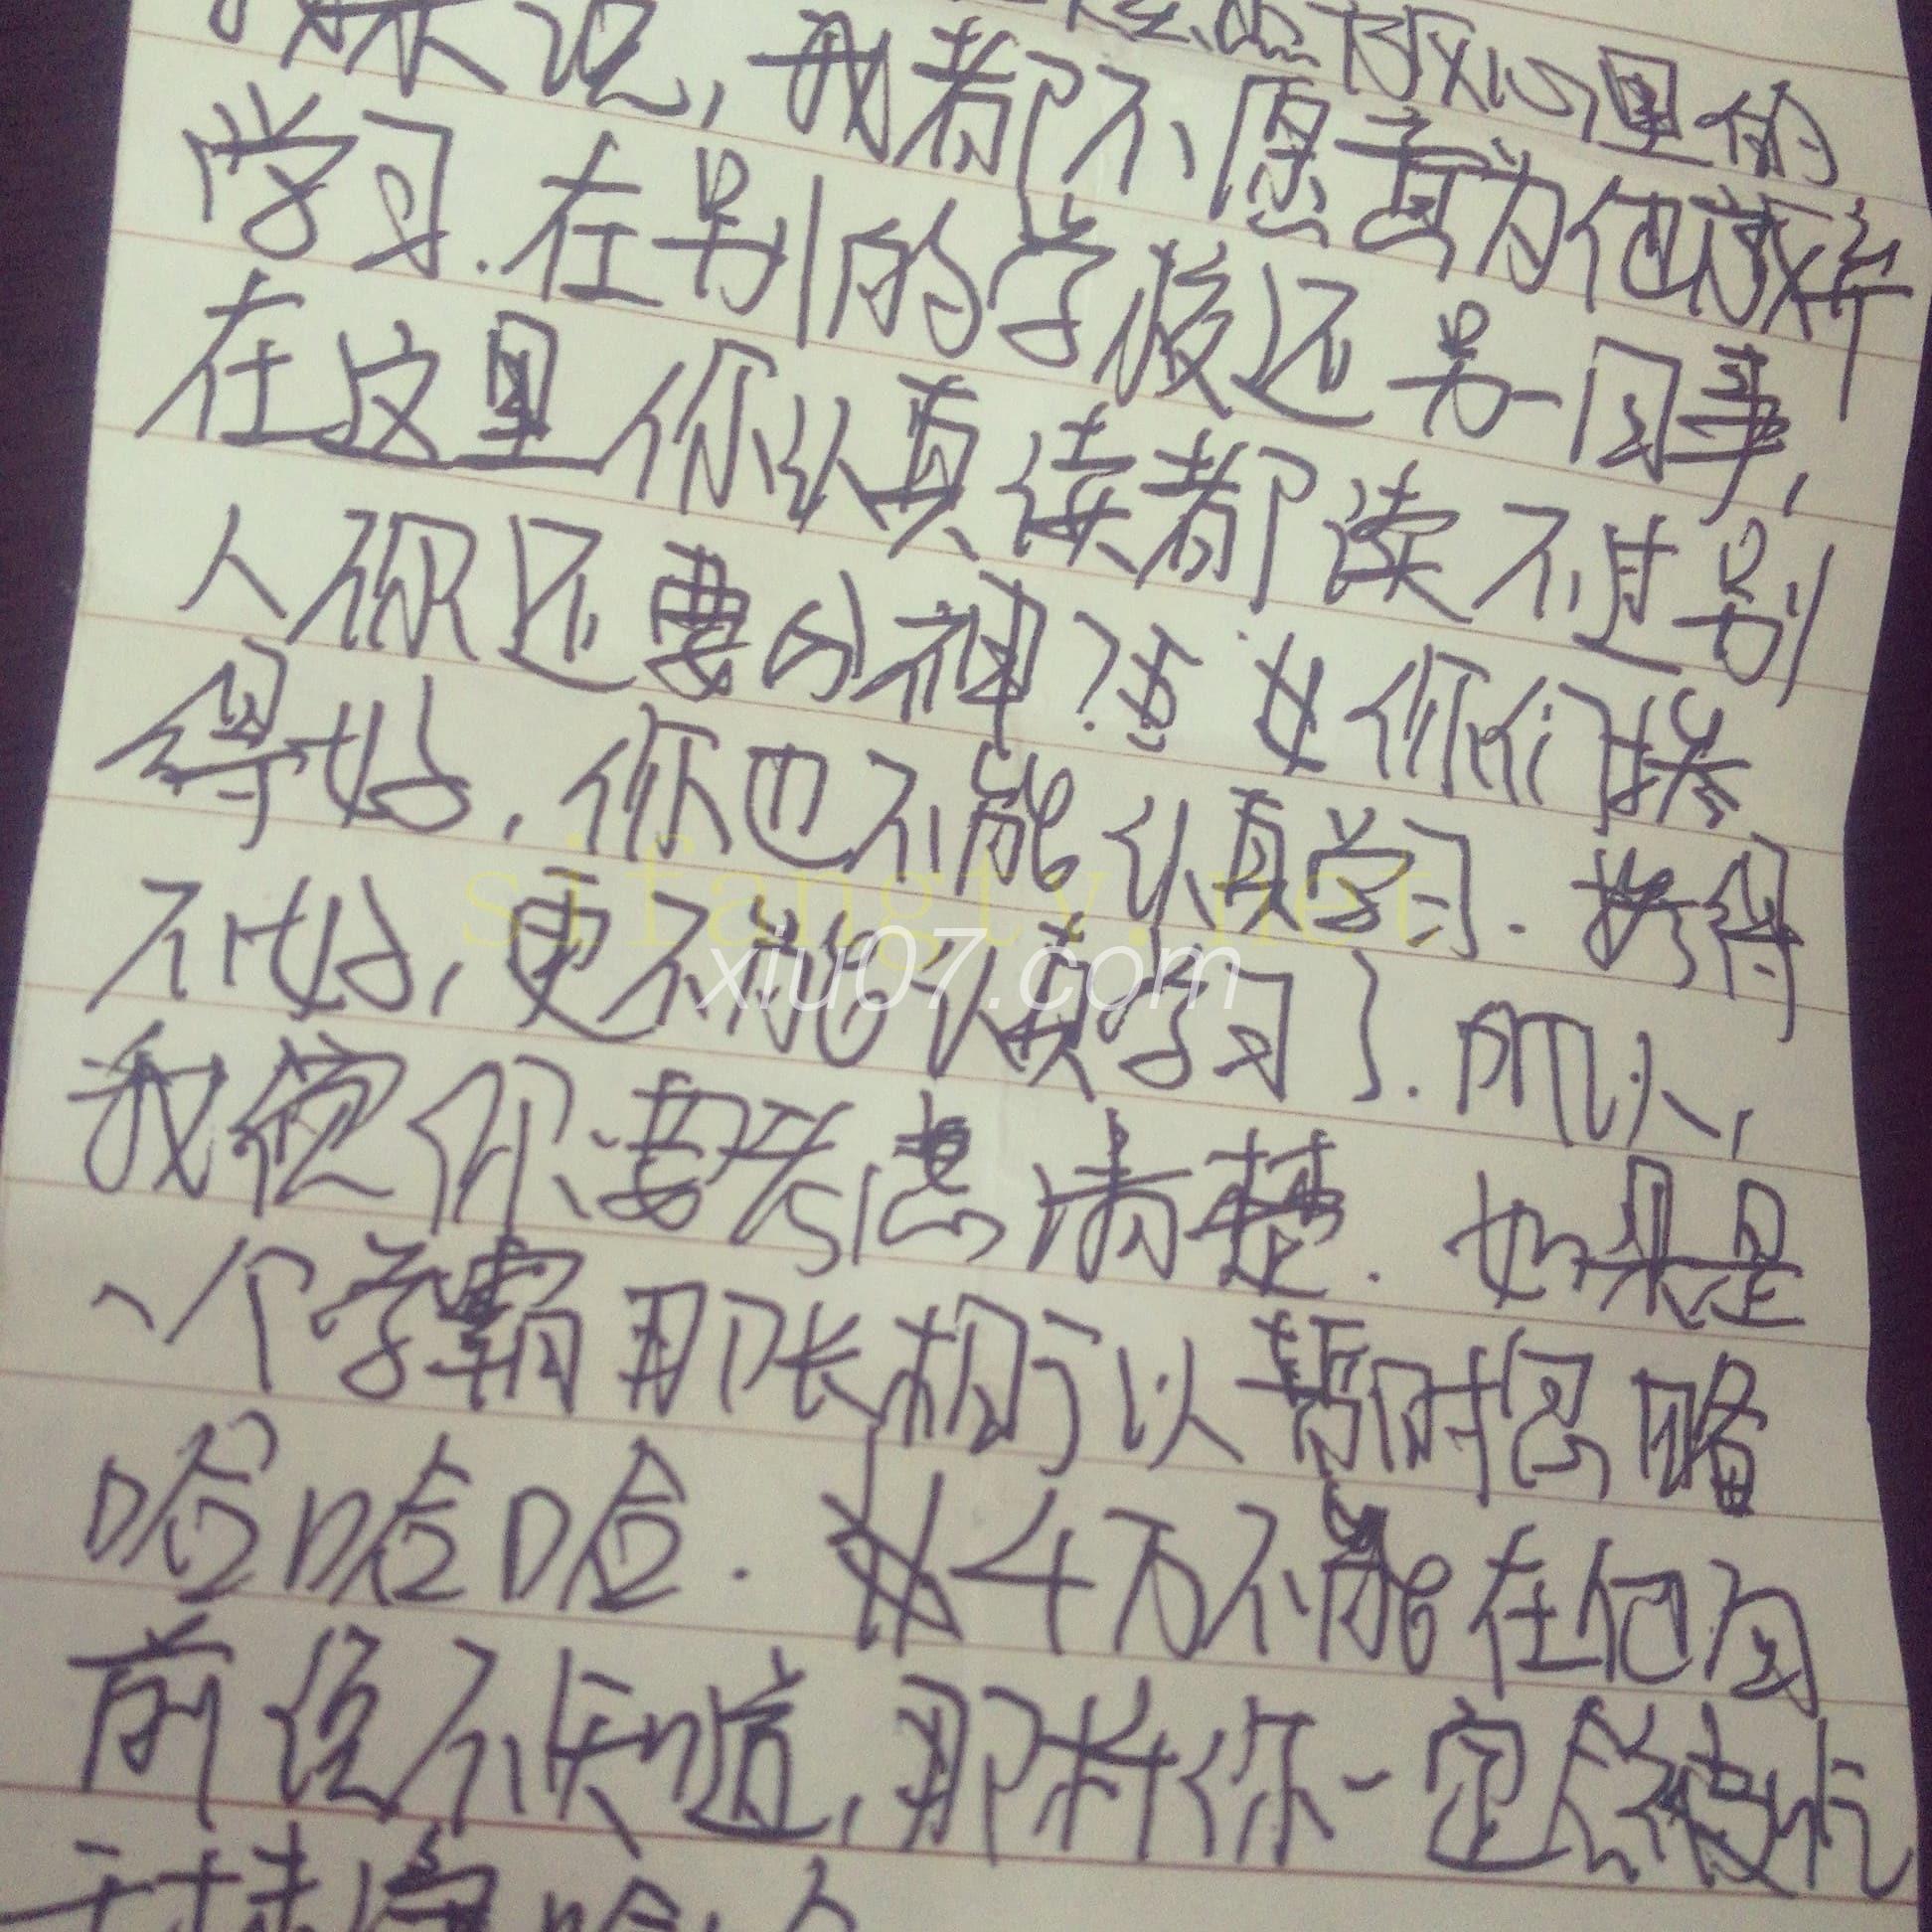 我心里的
来说，我都不愿意为他放弃
学习.在别的学校还另一回事，
在这里你认真读都读不过别
人你还要分神？要如你们接
得好，你也不能认真学习.接得
不好，更不能认真学习了.所以，
我觉你要考虑清楚.如果是
一个学霸那长相可以暂时忽略
哈哈哈.千万不能在他面
前说不知道，那样你一定会被
sifangtv.net
xiu07.com